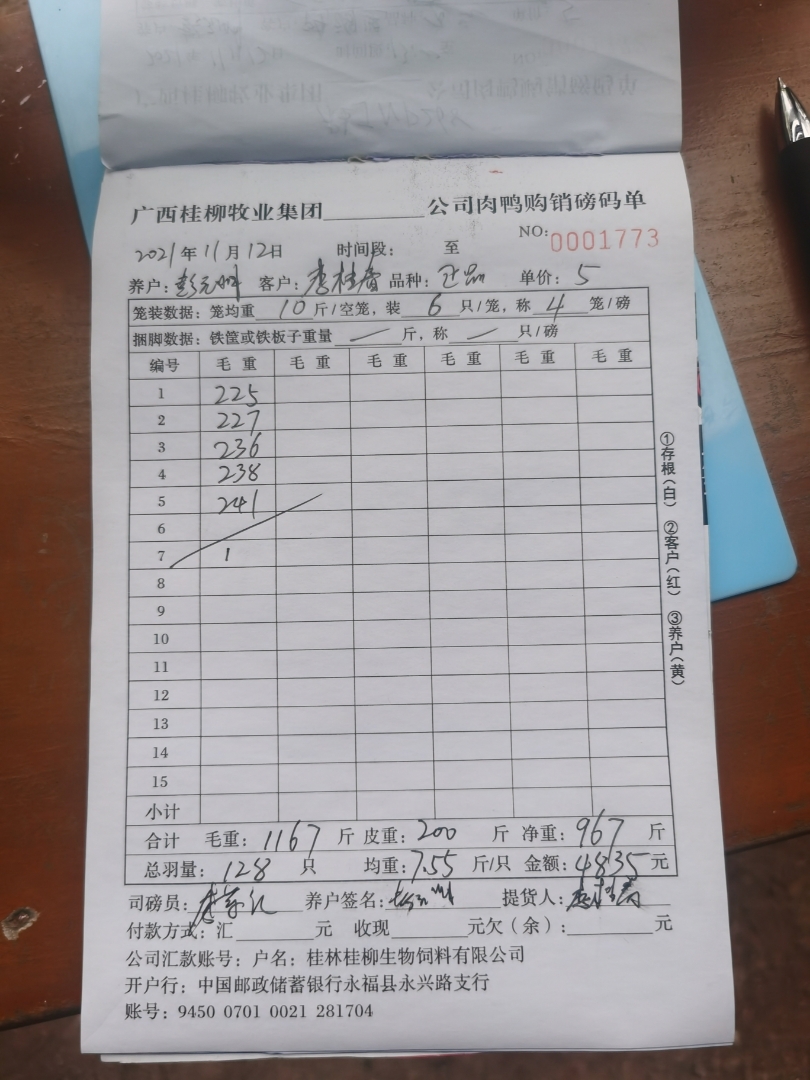 广西桂柳牧业集团________公司肉鸭购销磅码单
NO: 0001773
2021年11月12日 时间段: 至
养户: 客户: 李桂香 品种: 正品 单价: 5
笼装数据: 笼均重 10 斤/空笼, 装 6 只/笼, 称 4 笼/磅
捆脚数据: 铁筐或铁板子重量 — 斤, 称 — 只/磅
编号 毛重 毛重 毛重 毛重 毛重 毛重
1 225
2 227
3 236
4 238
5 241
6
7 1
8
9
10
11
12
13
14
15
小计
合计 毛重: 1167 斤 皮重: 200 斤 净重: 967 斤
总羽量: 128 只 均重: 7.55 斤/只 金额: 4835 元
司磅员: 养户签名: 提货人:
付款方式: 汇______元 收现______元欠(余):______元
公司汇款账号: 户名: 桂林桂柳生物饲料有限公司
开户行: 中国邮政储蓄银行永福县永兴路支行
账号: 9450 0701 0021 281704
①存根(白) ②客户(红) ③养户(黄)